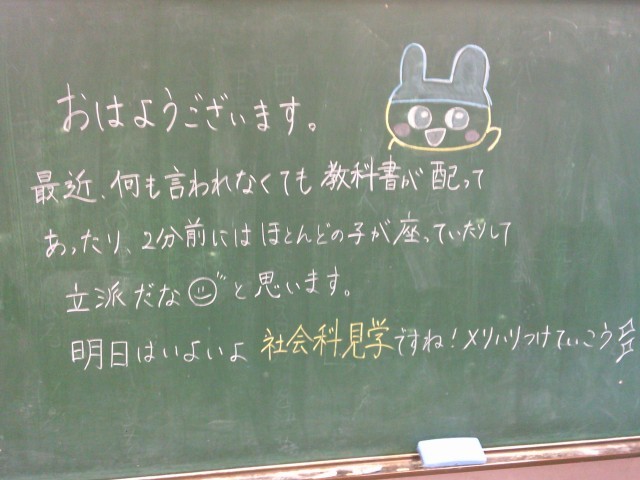 おはようございます。
最近、何も言われなくても教科書が配って
あったり、2分前にはほとんどの子が座っていたりして
立派だなと思います。
明日はいよいよ社会科見学ですね!メリハリつけていこう